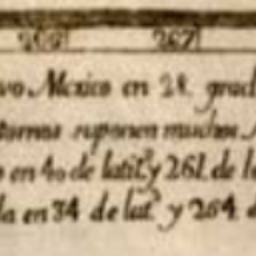 266 267
vo Mexico en 28. grad
tornas suponen muchos
en 40 de latit.ᵈ y 261. de lo
la en 34 de lat.ᵈ y 264. d